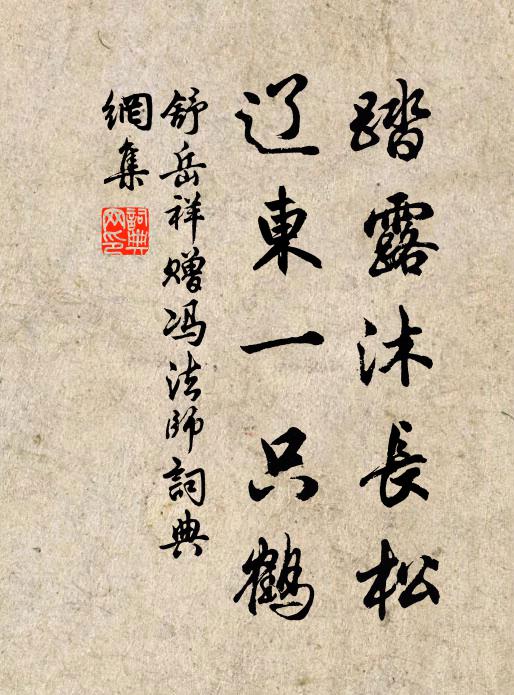 踏露沐長松
辽東一只鶴
舒岳祥赠冯法師詞典
網集
詞典網印